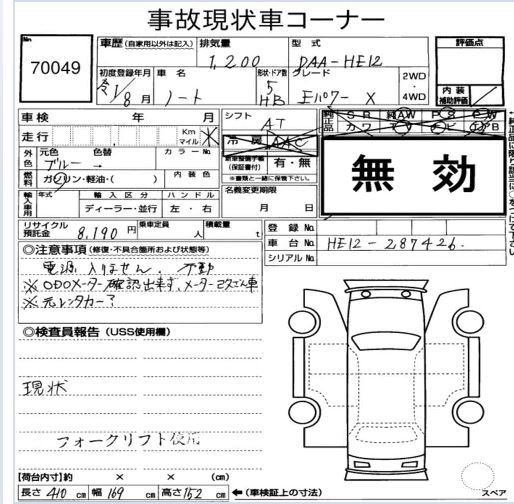 事故現状車コーナー
No. 70049
車歴 (自家用以外は記入) 排気量 1,200 型式 DAA-HE12
評価点
初度登録年月 令1/8月 車名 ノート 形状・ドア数 5 HB グレード eパワー X 2WD・4WD
内装 補助評価
車検 年 月 シフト AT
純正品 SR 純AW PS PW カワ ナビ TV エアB
走行 Km マイル ※ 冷房 AAC
無効
外色 元色 ブルー → 色替 カラーNo. 新車整備手帳(保証書付) 有・無
※書類と一緒に保管下さい。
燃料 ガソリン・軽油・( ) 内装色
名義変更期限 月 日
輸入車用 年式 輸入区分 ディーラー・並行 ハンドル 左・右
リサイクル預託金 8,190円 乗車定員 人 積載量 t
登録No.
車台No. HE12-287426.
シリアルNo.
◎注意事項 (修復・不具合箇所および状態等)
電源入りません。不動
※ODOメーター確認出来ず、メーター改ざん車
※元レンタカー?
◎検査員報告 (USS使用欄)
現状
フォークリフト使用
【荷台内寸】約 × × (cm)
長さ 410 cm 幅 169 cm 高さ 152 cm ←(車検証上の寸法)
スペア